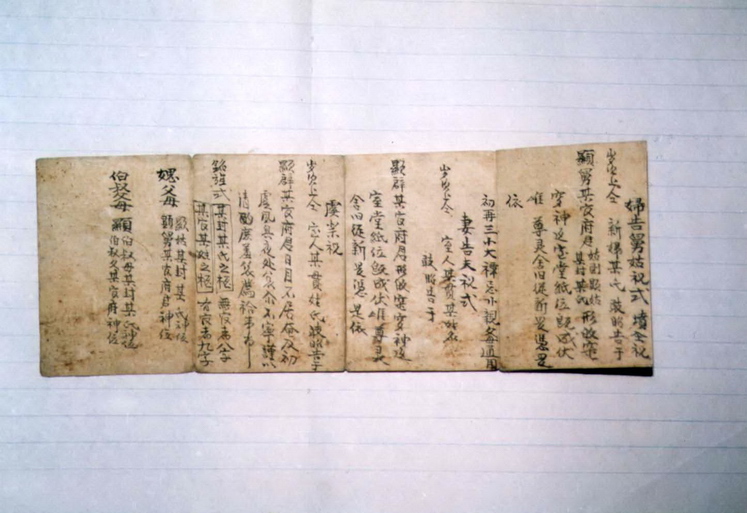 婦告舅姑祝式 墳仝祝
歲次上仝 新婦某氏 敢昭告于
顯舅某官府君 姑則顯姑某封某氏 形歸窀
穸神返室堂紙位旣成伏
惟 尊灵舍旧從新是憑是
依
初再三小大禫忌小祝各通用
妻告夫祝式
歲次上仝 室人某貫某姓名
敢昭告于
顯辟某官府君形歸窀穸神返
室堂紙位旣成伏惟尊灵
舍旧從新是憑是依
虞祭祝
歲次上仝 室人某貫姓氏敢昭告于
顯辟某官府君日月不居奄及初
虞夙興夜处哀不寧謹以
清酌庶羞哀薦祫事
銘旌式 某封某氏之柩
某官某姓之柩 有官者九字
媤父母 顯姑某封某氏神位
顯舅某官府君神位
伯叔母 顯伯叔母某封某氏神位
顯伯叔父某官府君神位